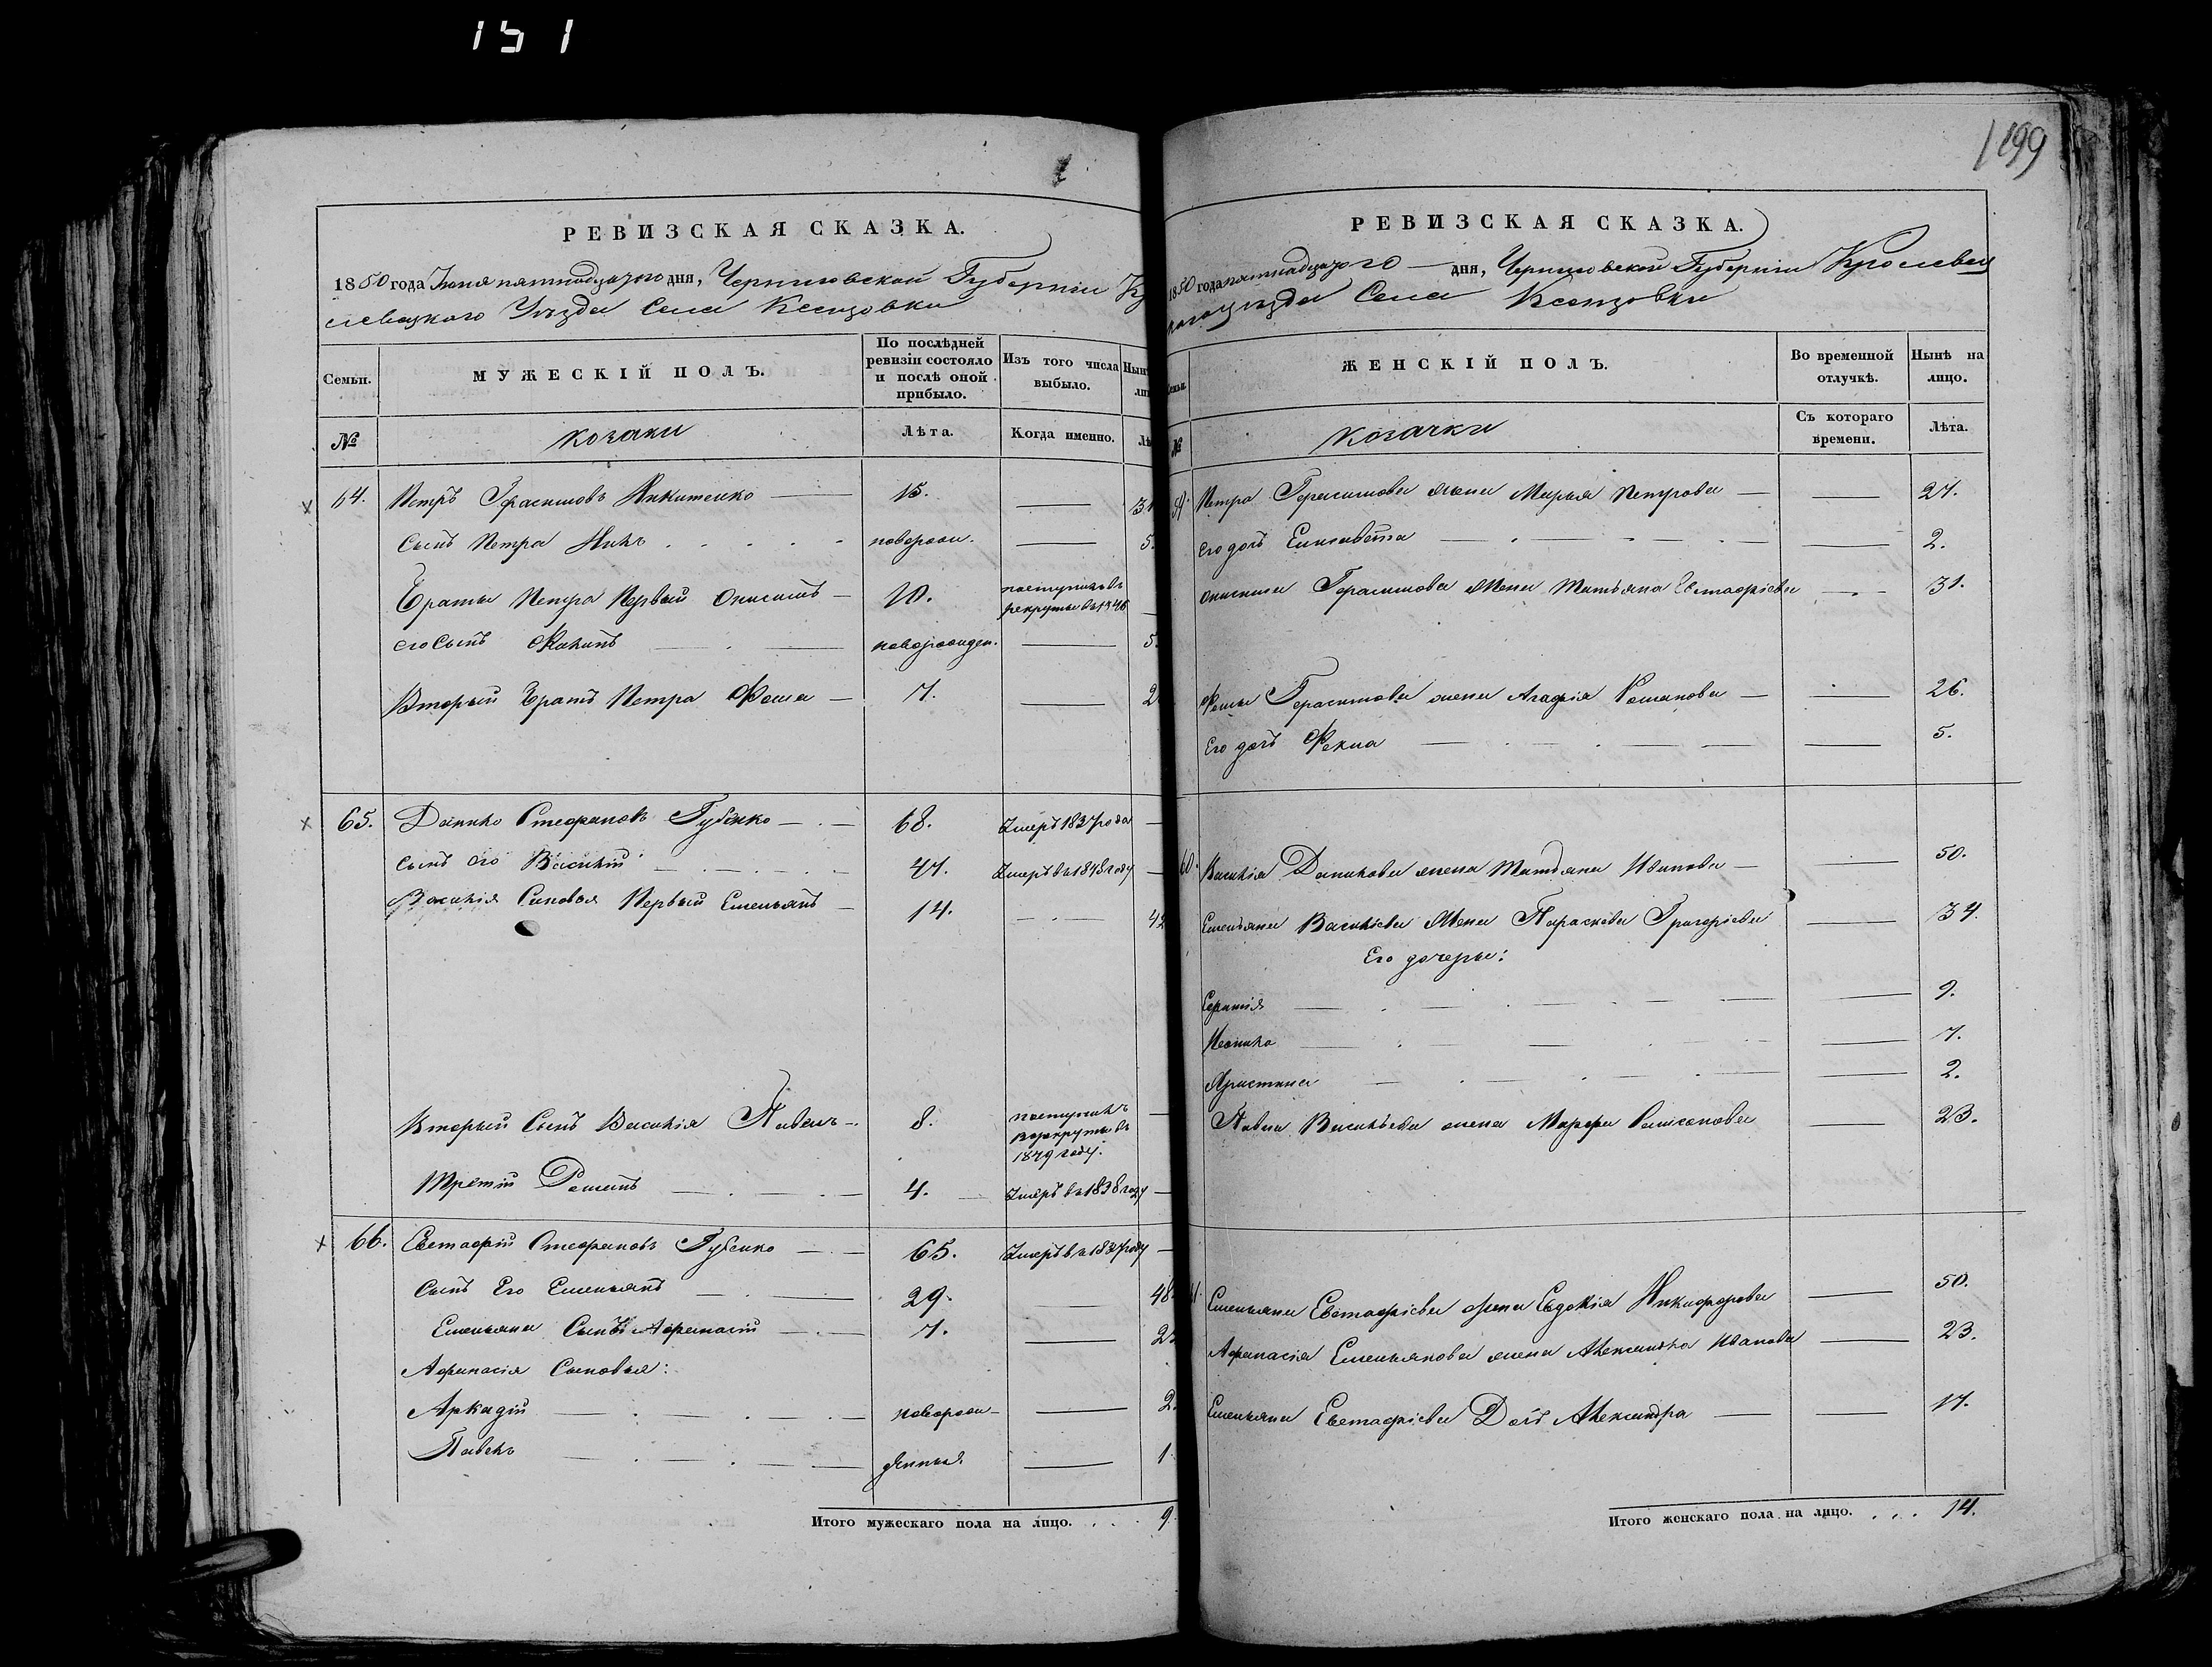 151
РЕВИЗСКАЯ СКАЗКА.
1850 года Іюня пятнадцатого дня, Черниговской Губерніи Кр
левецкого Уѣзда Села
Семьи.
МУЖЕСКІЙ ПОЛЪ.
По послѣдней ревизіи состояло и послѣ оной прибыло.
Изъ того числа выбыло.
№
козаки
Лѣта.
Когда именно.
64. Петръ Герасимовъ Никитенко 15. 31
Сынъ Петра новорож. 5.
Братья Петра Первый Онисимъ 10. поступилъ въ рекруты въ 1846
его Сынъ Филипъ новорожден. 5.
Вторый Братъ Петра Фома 7. 2
65. Данило Стефановъ Губенко 68. Умеръ 1837 года
Сынъ его Василій 47. Умеръ въ 1848 году
Василія Сыновья Первый Емельянъ 14.
Вторый Сынъ Василія Павелъ 8. поступилъ в рекруты въ 1849 году.
Третій Романъ 4. Умеръ въ 1838 году
66. Евстафій Стефановъ Губенко 65. Умеръ въ 1837 году
Сынъ Его Емельянъ 29. 48
Емельяна Сынъ Афанасій 7. 2
Афанасія Сыновья:
Аркадій новорож- 2.
Павелъ денныя. 1.
Итого мужескаго пола на лицо. . . . 9.
1199
РЕВИЗСКАЯ СКАЗКА.
1850 года пятнадцатого дня, Черниговской Губерніи Кролевец
кого уѣзда Села
ЖЕНСКІЙ ПОЛЪ.
Во временной отлучкѣ.
Нынѣ на лицо.
№
козачки
Съ котораго времени.
Лѣта.
Петра Герасимова жена Марья Петрова 27.
его дочь Елисавета 2.
Онисима Герасимова жена Татьяна Евстафіева 31.
Фомы Герасимова жена Агафія Романова 26.
Его дочь Фекла 5.
Василія Данилова жена Татьяна Иванова 50.
Емельяна Василіева жена Параскева Григоріева 34.
Его дочерье:
9.
7.
Христина 2.
Павла Василіева жена Марфа 23.
Емельяна Евстафіева жена Евдокія Никифорова 50.
Афанасія Емельянова жена Александра Иванова 23.
Емельяна Евстафіева Дочь Александра 17.
Итого женскаго пола на лицо. . . . 14.